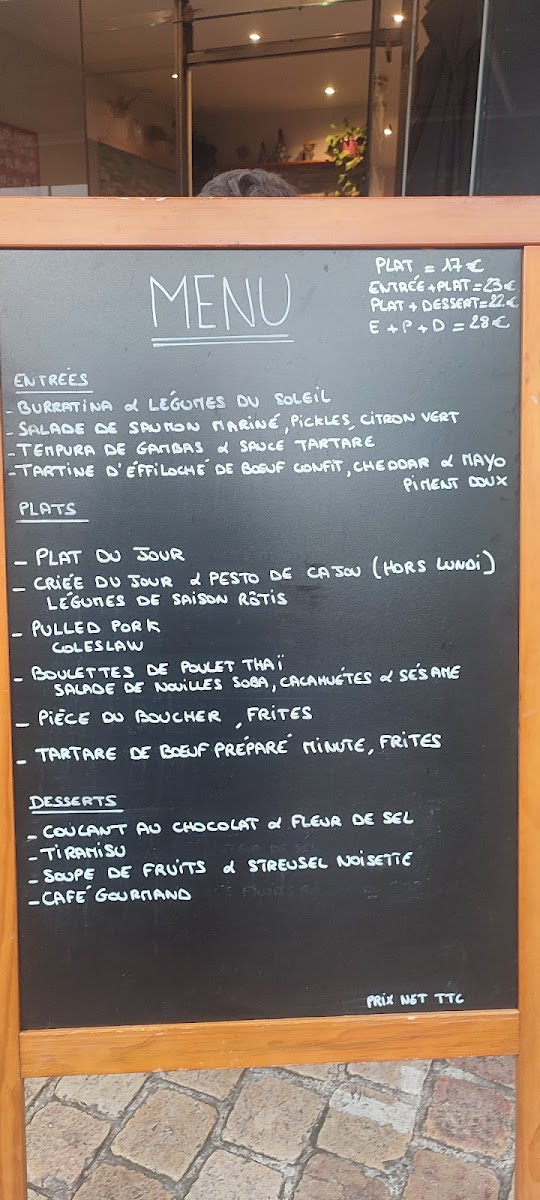 MENU
PLAT = 17€
ENTRÉE+PLAT=23€
PLAT+DESSERT=22€
E+P+D=28€
ENTRÉES
- BURRATINA & LÉGUMES DU SOLEIL
- SALADE DE SAUMON MARINÉ, PICKLES, CITRON VERT
- TEMPURA DE GAMBAS & SAUCE TARTARE
- TARTINE D'ÉFFILOCHÉ DE BŒUF CONFIT, CHEDDAR & MAYO
PIMENT DOUX
PLATS
- PLAT DU JOUR
- CRIÉE DU JOUR & PESTO DE CAJOU (HORS LUNDI)
LÉGUMES DE SAISON RÔTIS
- PULLED PORK
COLESLAW
- BOULETTES DE POULET THAÏ
SALADE DE NOUILLES SOBA, CACAHUÉTES & SÉSAME
- PIÈCE DU BOUCHER, FRITES
- TARTARE DE BŒUF PRÉPARÉ MINUTE, FRITES
DESSERTS
- COULANT AU CHOCOLAT & FLEUR DE SEL
- TIRAMISU
- SOUPE DE FRUITS & STREUSEL NOISETTE
- CAFÉ GOURMAND
PRIX NET TTC